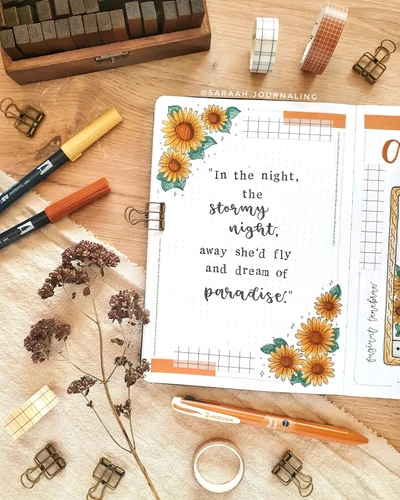 @SARAAH.JOURNALING
"In the night,
the
stormy
night,
away she'd fly
and dream of
paradise."